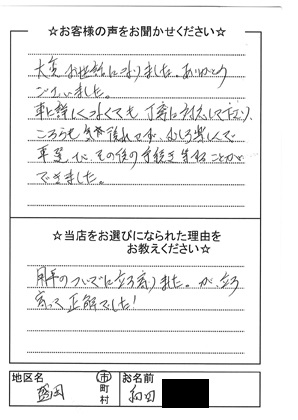 ☆お客様の声をお聞かせください☆
大変お世話になりました。ありがとう
ございました。
車に詳しくなくても丁寧に対応して下さり、
こちらも気後れせず、むしろ楽しんで
車選び、その後の手続き等することが
できました。
☆当店をお選びになられた理由を
お教えください☆
用事のついでに立ち寄りました。が、立ち
寄って正解でした!
地区名 盛岡 市 町 村 お名前 和田